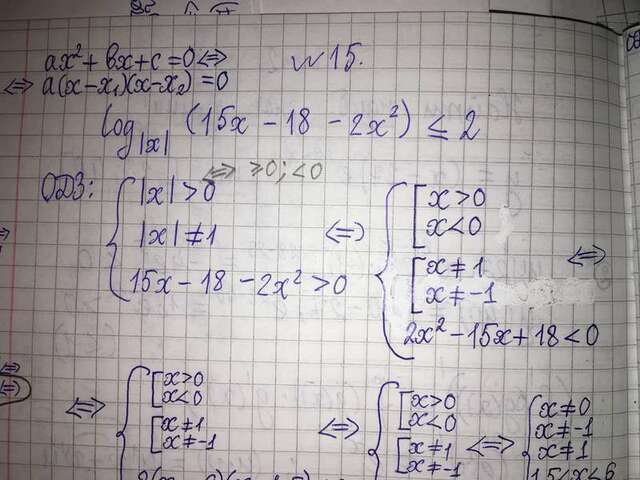 ax² + bx + c = 0 <=>
<=> a(x - x₁)(x - x₂) = 0
№ 15.
log|x| (15x - 18 - 2x²) ≤ 2
ОДЗ:
{ |x| > 0 <=> >0; <0
|x| ≠ 1
15x - 18 - 2x² > 0
<=>
{ [ x > 0
x < 0
[ x ≠ 1
x ≠ -1
2x² - 15x + 18 < 0
<=>
<=>
{ [ x > 0
x < 0
[ x ≠ 1
x ≠ -1
<=>
{ [ x > 0
x < 0
[ x ≠ 1
x ≠ -1
<=>
{ x ≠ 0
x ≠ -1
x ≠ 1